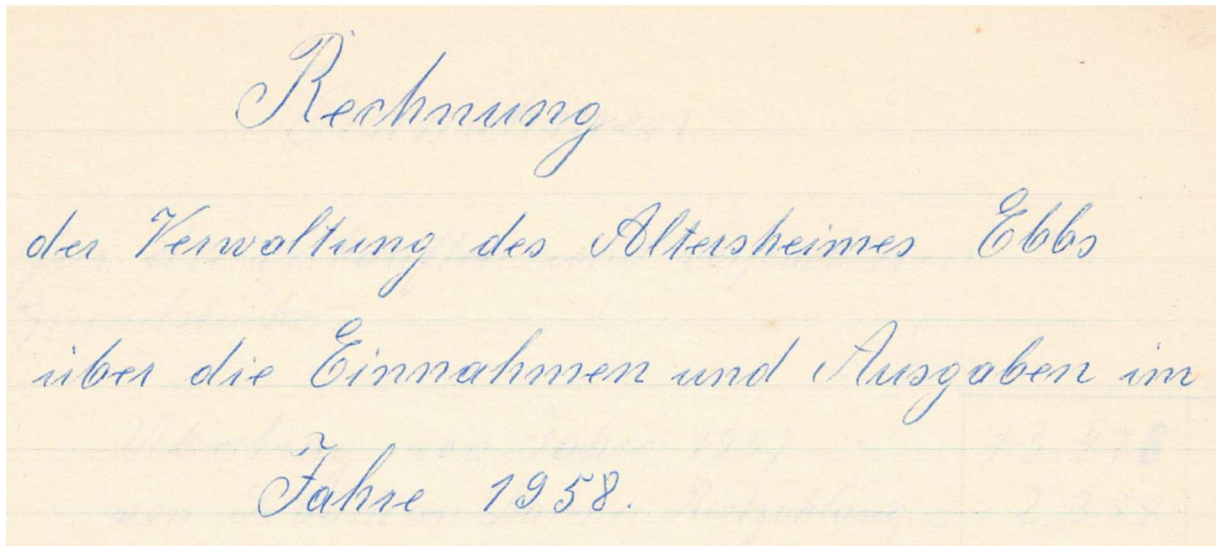 Rechnung
der Verwaltung des Altersheimes Ebbs
über die Einnahmen und Ausgaben im
Jahre 1958.